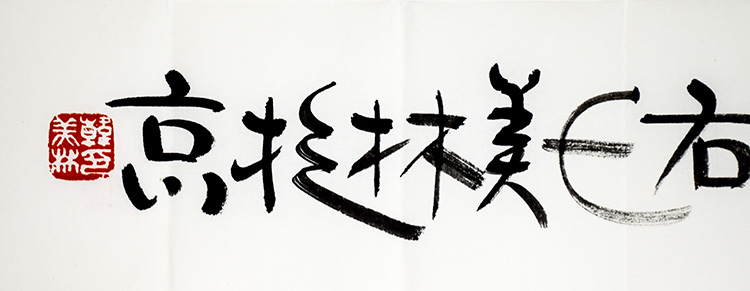 右
美林於京
韓印
美林